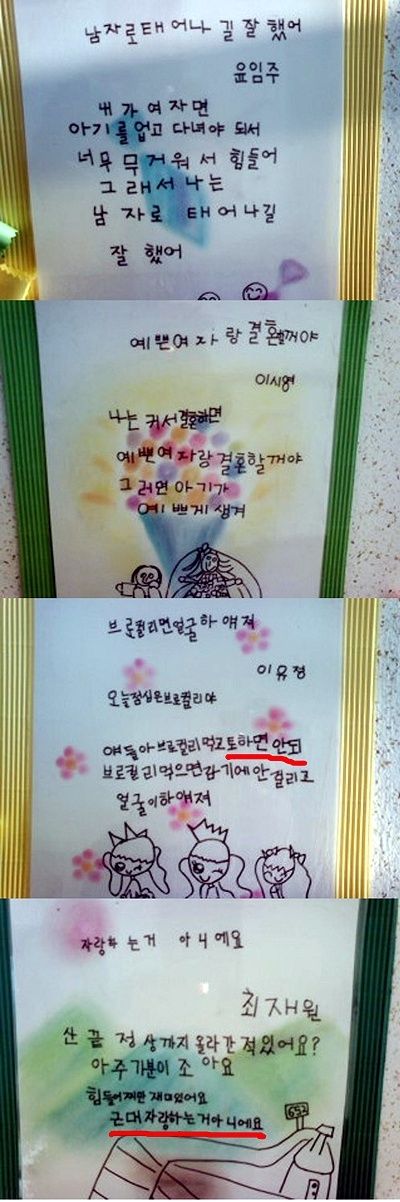 남자로 태어나길 잘 했어
윤임주
내가 여자면
아기를 업고 다녀야 되서
너무 무거워서 힘들어
그래서 나는
남자로 태어나길
잘 했어
예쁜여자랑 결혼할꺼야
이시영
나는 커서결혼하면
예쁜여자랑결혼할꺼야
그러면아기가
예쁘게생겨
브로컬리면얼굴하얘져
이유정
오늘점심은브로컬리야
얘들아브로컬리먹고토하면안되
브로컬리먹으면감기에안걸리고
얼굴이하얘져
자랑하는거 아니예요
최재원
산 끝 정상까지 올라간 적있어요?
아주 기분이 조아요
힘들어찌만 재미있어요
근대자랑하는거아니에요
652